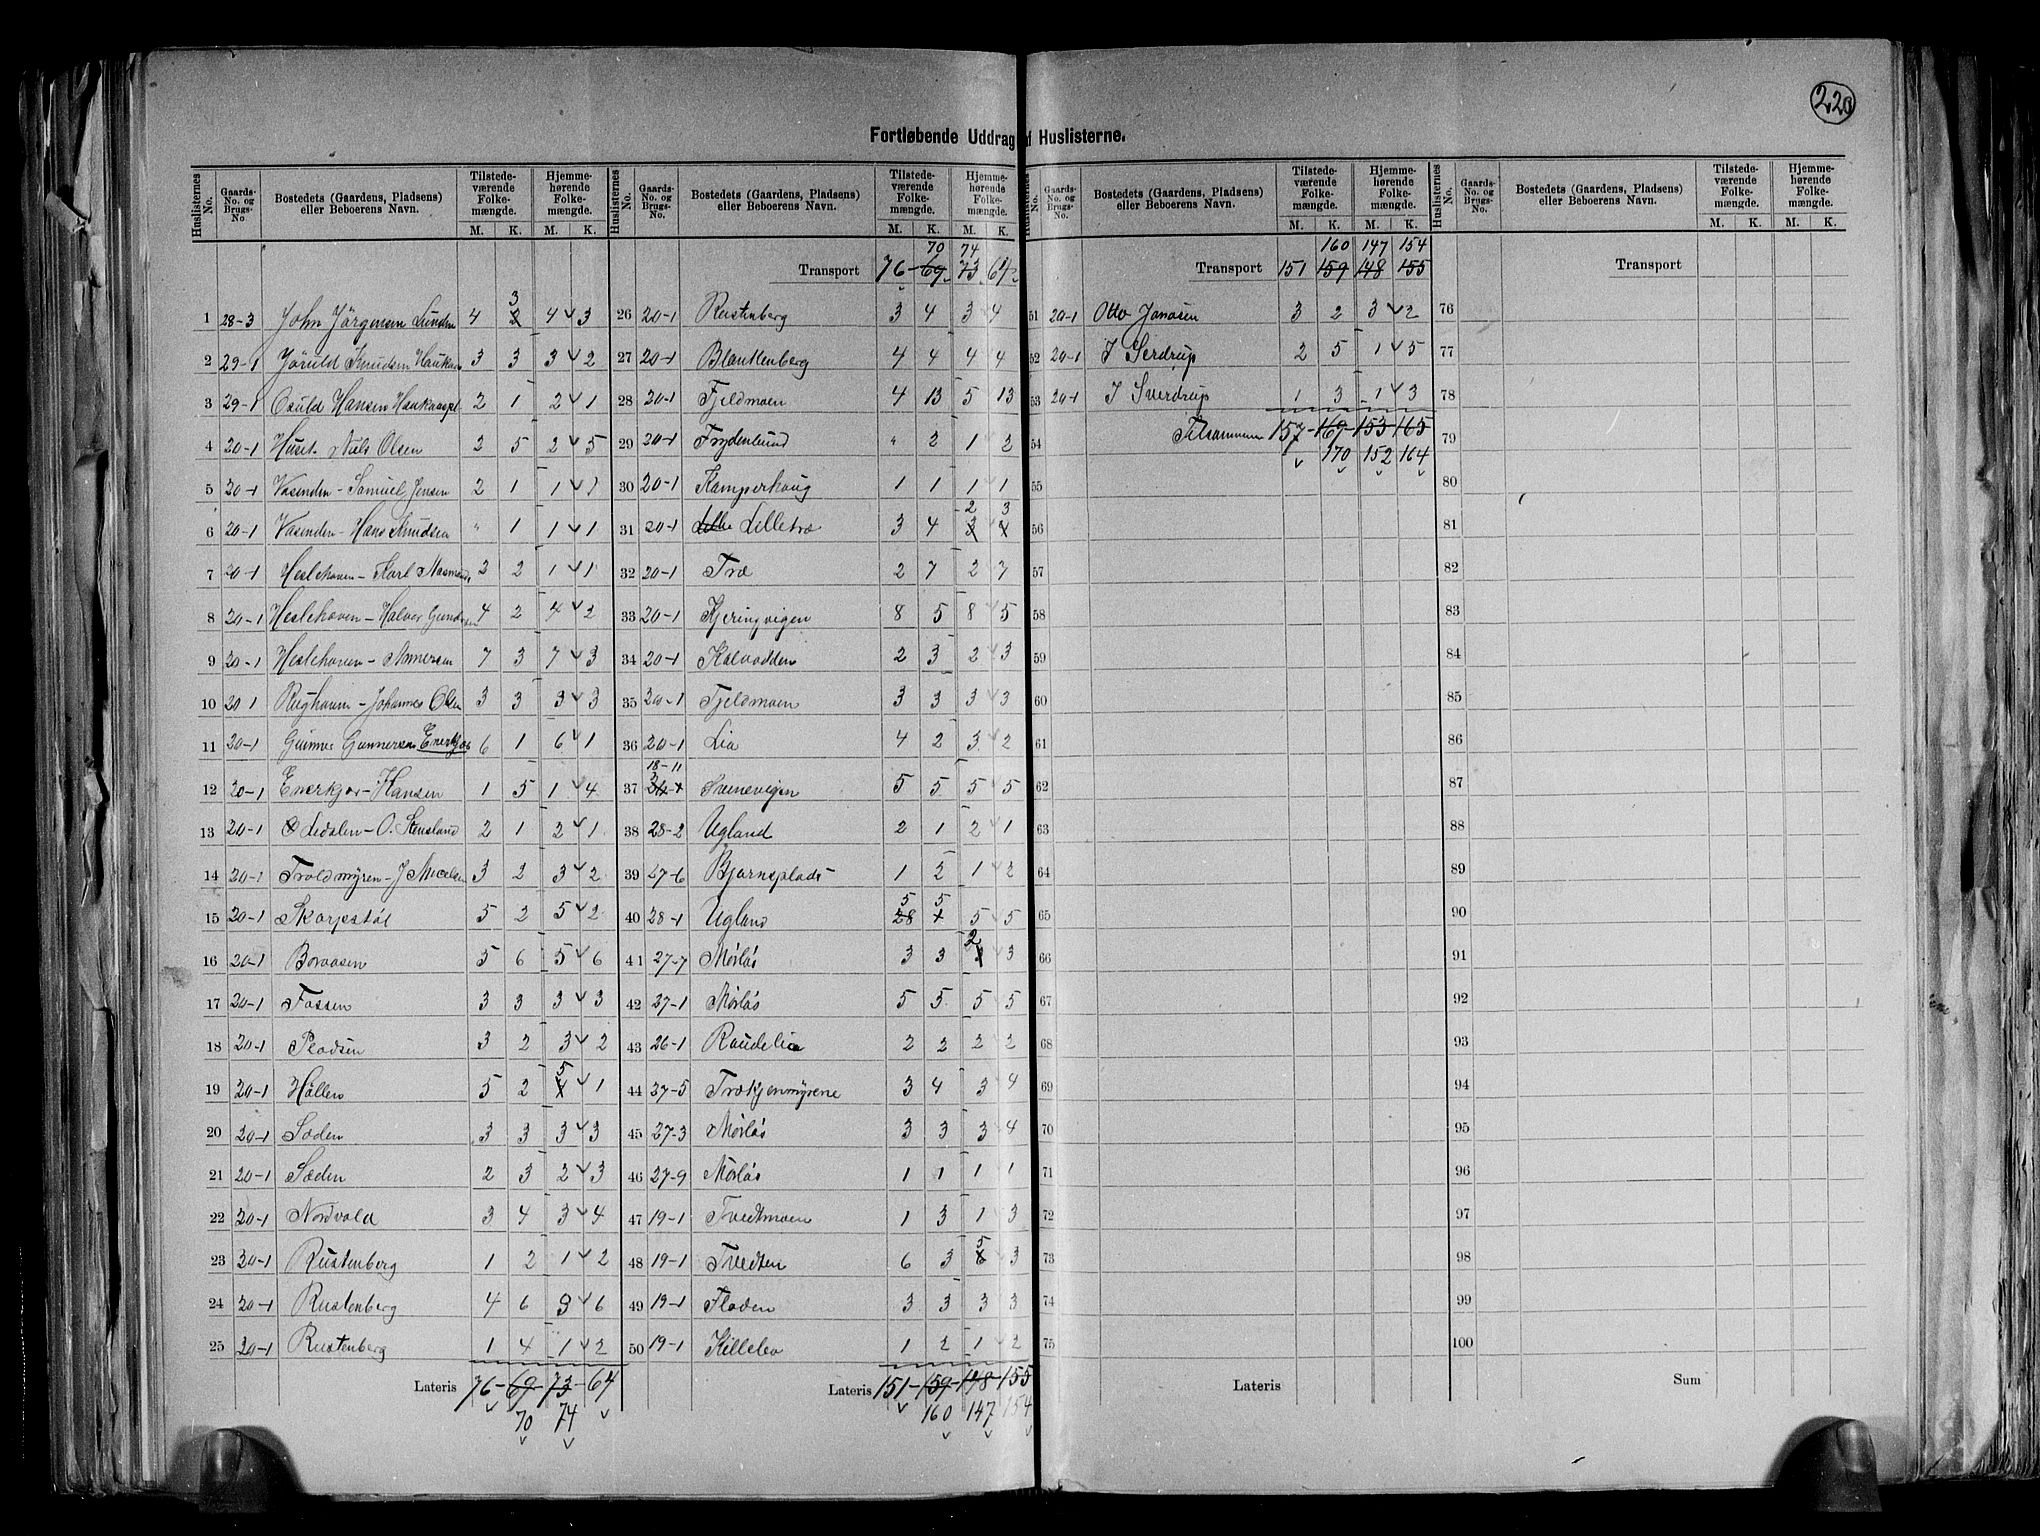 220
Fortløbende Uddrag af Huslisterne.
Huslisternes No. | Gaards-No. og Brugs-No | Bostedets (Gaardens, Pladsens) eller Beboerens Navn. | Tilstedeværende Folkemængde. M. K. | Hjemmehørende Folkemængde. M. K.
1 28-3 John Jörgensen Lunden 4 2 3 4 3
2 29-1 Jöruld Knudsen 3 3 3 2
3 29-1 Osuld Hansen 2 1 2 1
4 20-1 Huset. Niels Olsen 2 5 2 5
5 20-1 Vasenden - Samuel Jensen 2 1 1 1
6 20-1 Vasenden - Hans Knudsen " 1 1 1
7 20-1 Heslehaven - Karl 2 2 1 1
8 20-1 Heslehaven - Halvor Gundersen 4 2 4 2
9 20-1 Heslehaven - Annersen 7 3 7 3
10 20 1 Rughaven - Johannes Olsen 3 3 3 3
11 20-1 Gunner Gunnersen Enerkjær 6 1 6 1
12 20-1 Enerkjær - Hansen 1 5 1 4
13 20-1 Ledalen - O. Stensland 2 1 2 1
14 20-1 Troldmyren - J 3 2 3 2
15 20-1 Skarpestöl 5 2 5 2
16 20-1 Boraasen 5 6 5 6
17 20-1 Fossen 3 3 3 3
18 20-1 Pladsen 3 2 3 2
19 20-1 Höllen 5 2 4 5 1
20 20-1 Sæden 3 3 3 3
21 20-1 Sæden 2 3 2 3
22 20-1 Nordvold 3 4 3 4
23 20-1 Rustenberg 1 2 1 2
24 20-1 Rustenberg 4 6 3 6
25 20-1 Rustenberg 1 4 1 2
Lateris 76 - 69 - 73 - 64
70 74
Huslisternes No. | Gaards-No. og Brugs-No. | Bostedets (Gaardens, Pladsens) eller Beboerens Navn. | Tilstedeværende Folkemængde. M. K. | Hjemmehørende Folkemængde. M. K.
70 74
Transport 76 - 69 73 64
26 20-1 Rustenberg 3 4 3 4
27 20-1 Blankenberg 4 4 4 4
28 20-1 Fjeldmoen 4 13 5 13
29 20-1 Frydenlund " 2 1 2
30 20-1 Kamperhaug 1 1 1 1
2 3
31 20-1 Lille Lilletræ 3 4 3 4
32 20-1 Træ 2 7 2 7
33 20-1 Kjeringvigen 8 5 8 5
34 20-1 Kalvodden 2 3 2 3
35 20-1 Fjeldmoen 3 3 3 3
36 20-1 Lia 4 2 3 2
18-11
37 Svenevigen 5 5 5 5
38 28-2 Ugland 2 1 2 1
39 27-6 Bjørnsplads 1 2 1 2
5 5
40 28-1 Ugland 28 5 5
2
41 27-7 Mørløs 3 3 3
42 27-1 Mørløs 5 5 5 5
43 26-1 Raudelia 2 2 2 2
44 27-5 Trækjenmyrene 3 4 3 4
45 27-3 Mørløs 3 3 3 4
46 27-9 Mørløs 1 1 1 1
47 19-1 Tvedtmoen 1 3 1 3
5
48 19-1 Tvedten 6 3 6 3
49 19-1 Floden 3 3 3 3
50 19-1 Killeleo 1 2 1 2
Lateris 151 - 159 - 148 - 155
160 147 154
Huslisternes No. | Gaards-No. og Brugs-No. | Bostedets (Gaardens, Pladsens) eller Beboerens Navn. | Tilstedeværende Folkemængde. M. K. | Hjemmehørende Folkemængde. M. K.
160 147 154
Transport 151 159 148 155
51 20-1 Otto Janasen 3 2 3 2
52 20-1 J Serdrup 2 5 1 5
53 20-1 J Sverdrup 1 3 1 3
54 Tilsammen 157 - 169 - 153 - 165
170 152 164
55
56
57
58
59
60
61
62
63
64
65
66
67
68
69
70
71
72
73
74
75
Lateris
Huslisternes No. | Gaards-No. og Brugs-No. | Bostedets (Gaardens, Pladsens) eller Beboerens Navn. | Tilstedeværende Folkemængde. M. K. | Hjemmehørende Folkemængde. M. K.
Transport
76
77
78
79
80
81
82
83
84
85
86
87
88
89
90
91
92
93
94
95
96
97
98
99
100
Sum